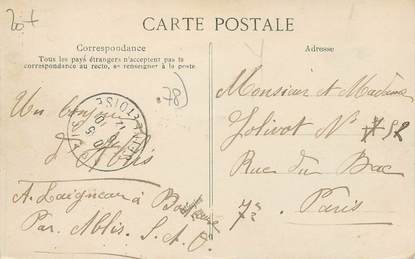 20+
CARTE POSTALE
Correspondance
Tous les pays étrangers n'acceptent pas la
correspondance au recto, se renseigner à la poste
Adresse
(78)
Un bonjour
d'Ablis
A. Laigneau à
Par Ablis. S. & O.
Monsieur et Madame
Jolivot N° 52
Rue du Bac
7e Paris